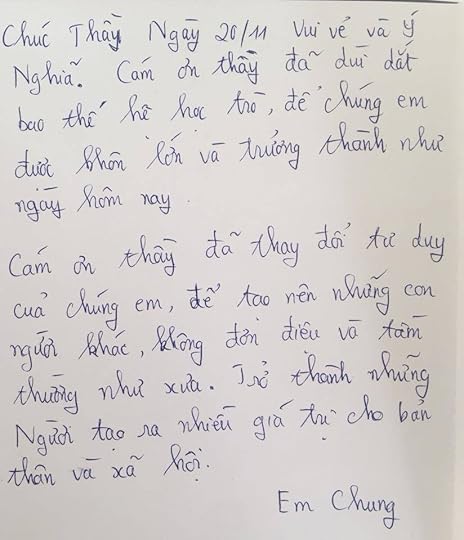 Chúc Thầy Ngày 20/11 Vui vẻ và ý
Nghĩa. Cám ơn thầy đã dùi dắt
bao thế hệ học trò, để chúng em
được khôn lớn và trưởng thành như
ngày hôm nay.
Cám ơn thầy đã thay đổi tư duy
của chúng em, để tạo nên những con
người khác, không đơn điệu và tầm
thường như xưa. Trở thành những
Người tạo ra nhiều giá trị cho bản
thân và xã hội.
Em Chung